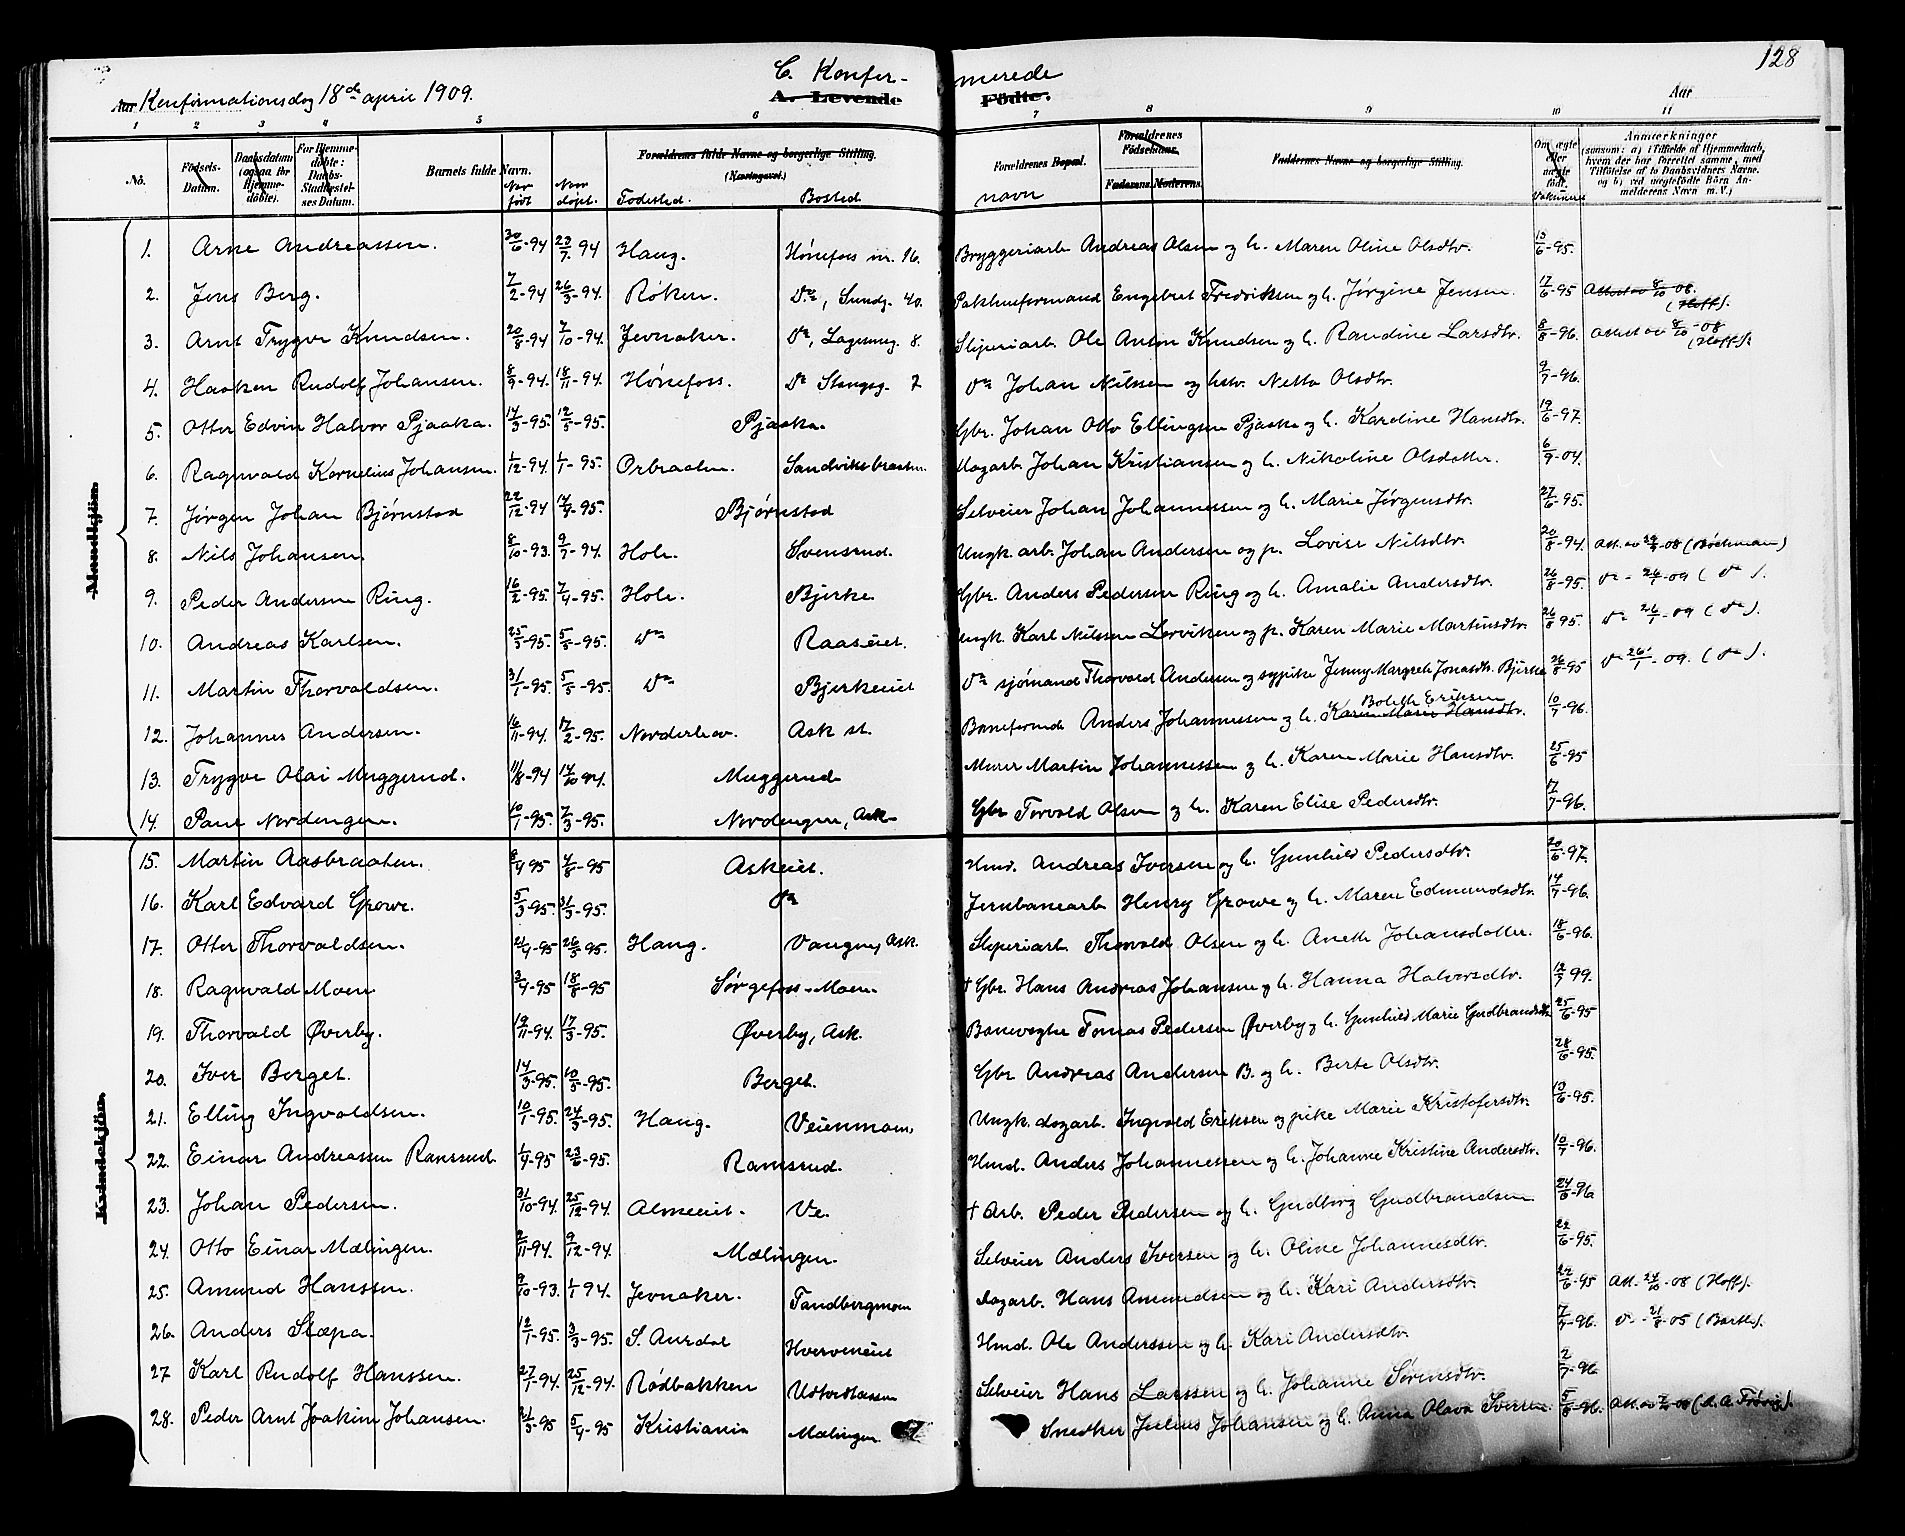 128
C. Konfer- merede
Aar Konfirmationsdag 18de april 1909. A. Levende Födte. Aar
1 2 3 4 5 6 7 8 9 10 11
No. Födsels-Datum. Daabsdatum (ogsaa for Hjemme-döbte). For Hjemme-döbte: Daabs-Stadfæstel-ses Datum. Barnets fulde Navn. Naar født Naar døpt. Forældrenes fulde Navne og borgerlige Stilling. (Næringsvei.) Fødested. Bosted Forældrenes Bopæl. navn Forældrenes Födselsaar. Faderens. Moderens. Faddernes Navne og borgerlige Stilling. Om ægte eller uægte født. Vaksinert Anmærkninger (saasom: a) i Tilfælde af Hjemmedaab, hvem der har forrettet samme, med Tilføielse af to Daabsvidners Navne. og b) ved uegtefödte Börn Anmelderens Navn m. V.)
Mandkjön.
1. Arne Andreassen. 30/6-94 23/7 94 Haug. Hønefoss nr. 16. Bryggeriarb. Andreas Olsen og h. Maren Oline Olsdtr. 13/6-95.
2. Jens Berg. 7/2-94 26/3-94. Røken. Do, Sundg. 40. Pakhusformand Engebret Fredriksen og h. Jørgine Jensen. 17/6-95 Attest av 8/10-08. (Hoff).
3. Arnt Trygve Knudsen. 20/8-94 7/10-94. Jevnaker. Do, 8. Sliperiarb. Ole Anton Knudsen og h. Randine Larsdtr. 8/8-96. Attest av 8/10-08 (Hoff).
4. Haaken Rudolf Johansen. 8/9-94. 18/11-94. Hønefoss. Do Stangsg. 7 Do Johan Nilssen og hstr. Netta Olsdtr. 9/7-96.
5. Otter Edvin Halvor Pjaaka. 14/3-95. 12/5-95. Pjaaka. Gbr. Johan Otto Ellingsen Pjaaka og h. Karoline Hansdtr. 19/6-97.
6. Ragnvald Kornelius Johansen. 1/12-94 1/1-95. Orbraaten. Sandviksbraaten. Dagarb. Johan Kristiansen og h. Nikoline Olsdatter. 6/9-04.
7. Jørgen Johan Bjørnstad 22/12-94 14/4-95. Bjørnstad Selveier Johan Johannessen og h. Marie Jørgensdtr. 27/6-95.
8. Nils Johansen. 8/10-93. 9/7-94. Hole. Svensrud. Ungk. arb. Johan Andersen og p. Lovise Nilsdtr. 20/8-94. Att. av -08 (Bøckman)
9. Peder Andersen Ring. 16/2-95. 7/4-95. Hole. Bjerke Gbr. Anders Pedersen Ring og h. Amalie Andersdtr. 26/8-95. Do - 26/1-09 (Do).
10. Andreas Karlsen. 25/3-95. 5/5-95. Do Raaseiet. Ungk. Karl Nilssen Lerviken og p. Karen Marie Martinsdtr. 26/8 95. Do - 26/1-09 (Do).
11. Martin Thorvaldsen. 31/1-95. 5/5-95. Do Bjerkeeiet Do sjømand Thorvald Andersen og sypike Jenny Margrete Jonasdtr. Bjerke 26/8-95 Do 26/1-09. (Do).
12. Johannes Andersen. 16/11-94. 17/2-95. Norderhov. Ask st. Baneformand Anders Johannessen og h. Karen Marie Hansdtr. Boleth Eriksen 10/7-96.
13. Trygve Olai Muggerud. 11/8-94 14/10 94. Muggerud Murer Martin Johannessen og h. Karen Marie Hansdtr. 25/6-95
14. Paul Nordengen. 10/1-95. 7/3-95. Nordengen, Ask Gbr Torvald Olsen og h. Karen Elise Pedersdtr. 17/7-96.
Kvindekjön.
15. Martin Aasbraaten. 8/4 95 4/8-95 Askeiet. Hmd. Andreas Iversen og h. Gunhild Pedersdtr. 20/6-97.
16. Karl Edvard Growe. 5/3-95. 31/3-95. Do Jernbanearb Henry Growe og h. Maren Edmundsdtr. 14/7-96.
17. Otter Thorvaldsen. 21/4-95 26/5 95. Haug. Vangen, Ask. Sliperiarb. Thorvald Olsen og h. Anette Johansdatter. 18/6-96.
18. Ragnvald Moen 3/4-95 18/8-95 Sørgefoss-Moen. † Gbr. Hans Andreas Johansen og h. Hanna Halvorsdtr. 12/7 99.
19. Thorvald Øverby. 19/11-94. 17/3-95. Øverby, Ask. Banevogter Tomas Pedersen Øverby og h. Gunhild Marie Gudbrandsdtr. 25/6-95
20. Iver Berget. 14/3-95. 10/5-95. Berget. Gbr Andreas Andersen B. og h. Berte Olsdtr. 28/6-95.
21. Elling Ingvaldsen. 10/1-95. 24/3-95. Haug. Veienmoen, Ungk. dagarb. Ingvald Eriksen og pike Marie Kristofersdtr. 10/6-95.
22. Einar Andreassen Ramsrud 1/4-95 23/6-95. Ramsrud. Hmd. Anders Johannessen og h. Johanne Kristine Andersdtr. 10/7-96.
23. Johan Pedersen. 31/10-94. 25/12-94. Almeeiet. Do. † Arb. Peder Pedersen og h. Gudbrandsen 24/6-96
24. Otto Einar Mælingen. 2/11-94. 9/12-94. Mælingen. Selveier Anders Iversen og h. Oline Johannesdtr. 22/6-95.
25. Amund Hanssen. 9/10-93. 1/1 94. Jevnaker. Tandbergmoen Dagarb. Hans Amundsen og h. Kari Andersdtr. 22/6-95 Att. 24/10-08 (Hoff).
26. Anders Slæpa. 12/1-95. 3/3-95. S. Aurdal Hverveneiet Hmd. Ole Anderssen og h. Kari Andersdtr. 7/7-96. Do - -05 (Barth).
27 Karl Rudolf Hanssen. 27/1-94. 25/12-94. Rødbakken Selveier Hans Larssen og h. Johanne Sørensdtr. 2/7-96
28. Peder Arnt Joakim Johansen. 21/3-95 5/4-95 Kristiania Mælingen Snedker Julius Johansen og h. Anna Olava Iversen. 5/8-96.